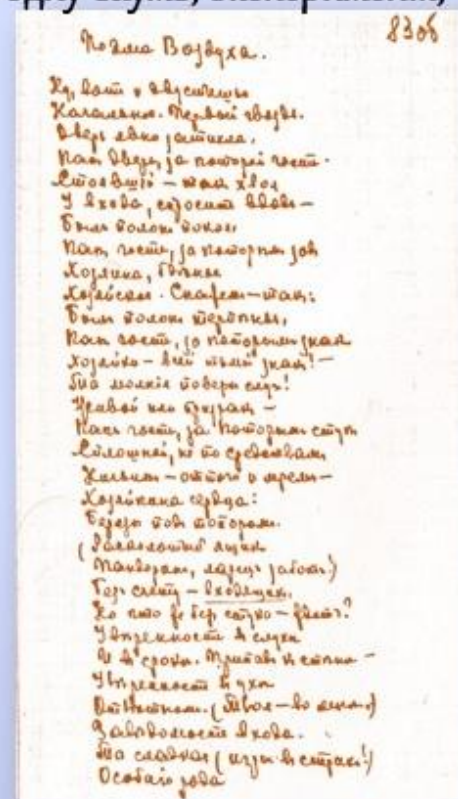 83об
Поэма Воздуха.
Ну, вот и двустишье
Начальное. Первый гвоздь.
Дверь явно затихла,
Как дверь, за которой гость.
Стоявший — так хвоя
У входа, спросите вдов —
Был полон покоя,
Как гость, за которым зов
Хозяина, бденье
Хозяйское. Скажем — так:
Был полон терпенья,
Как гость, за которым знак
Хозяйки — всей тьмы знак! —
Та молния поверх слуг!
Живой или призрак —
Как гость, за которым стук
Сплошной, не по средствам
Ничьим — оттого и мрем —
Хозяйкина сердца:
Березы под топором.
(Расколотый ящик
Пандорин, ларец забот!)
Без счету — входящих,
Но кто же без стука — ждет?
Уверенность в слухе
И в сроке. Припав к стене —
Уверенность в ухе
Ответном. (Твоя — во мне.)
Заведомость входа.
Та сладкая (игры в страх!)
Особаго рода